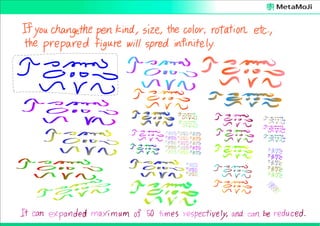 MetaMoJi
If you change the pen kind, size, the color, rotation etc.,
the prepared figure will spred infinitely
It can expanded maximum of 50 times respectively, and can be reduced.